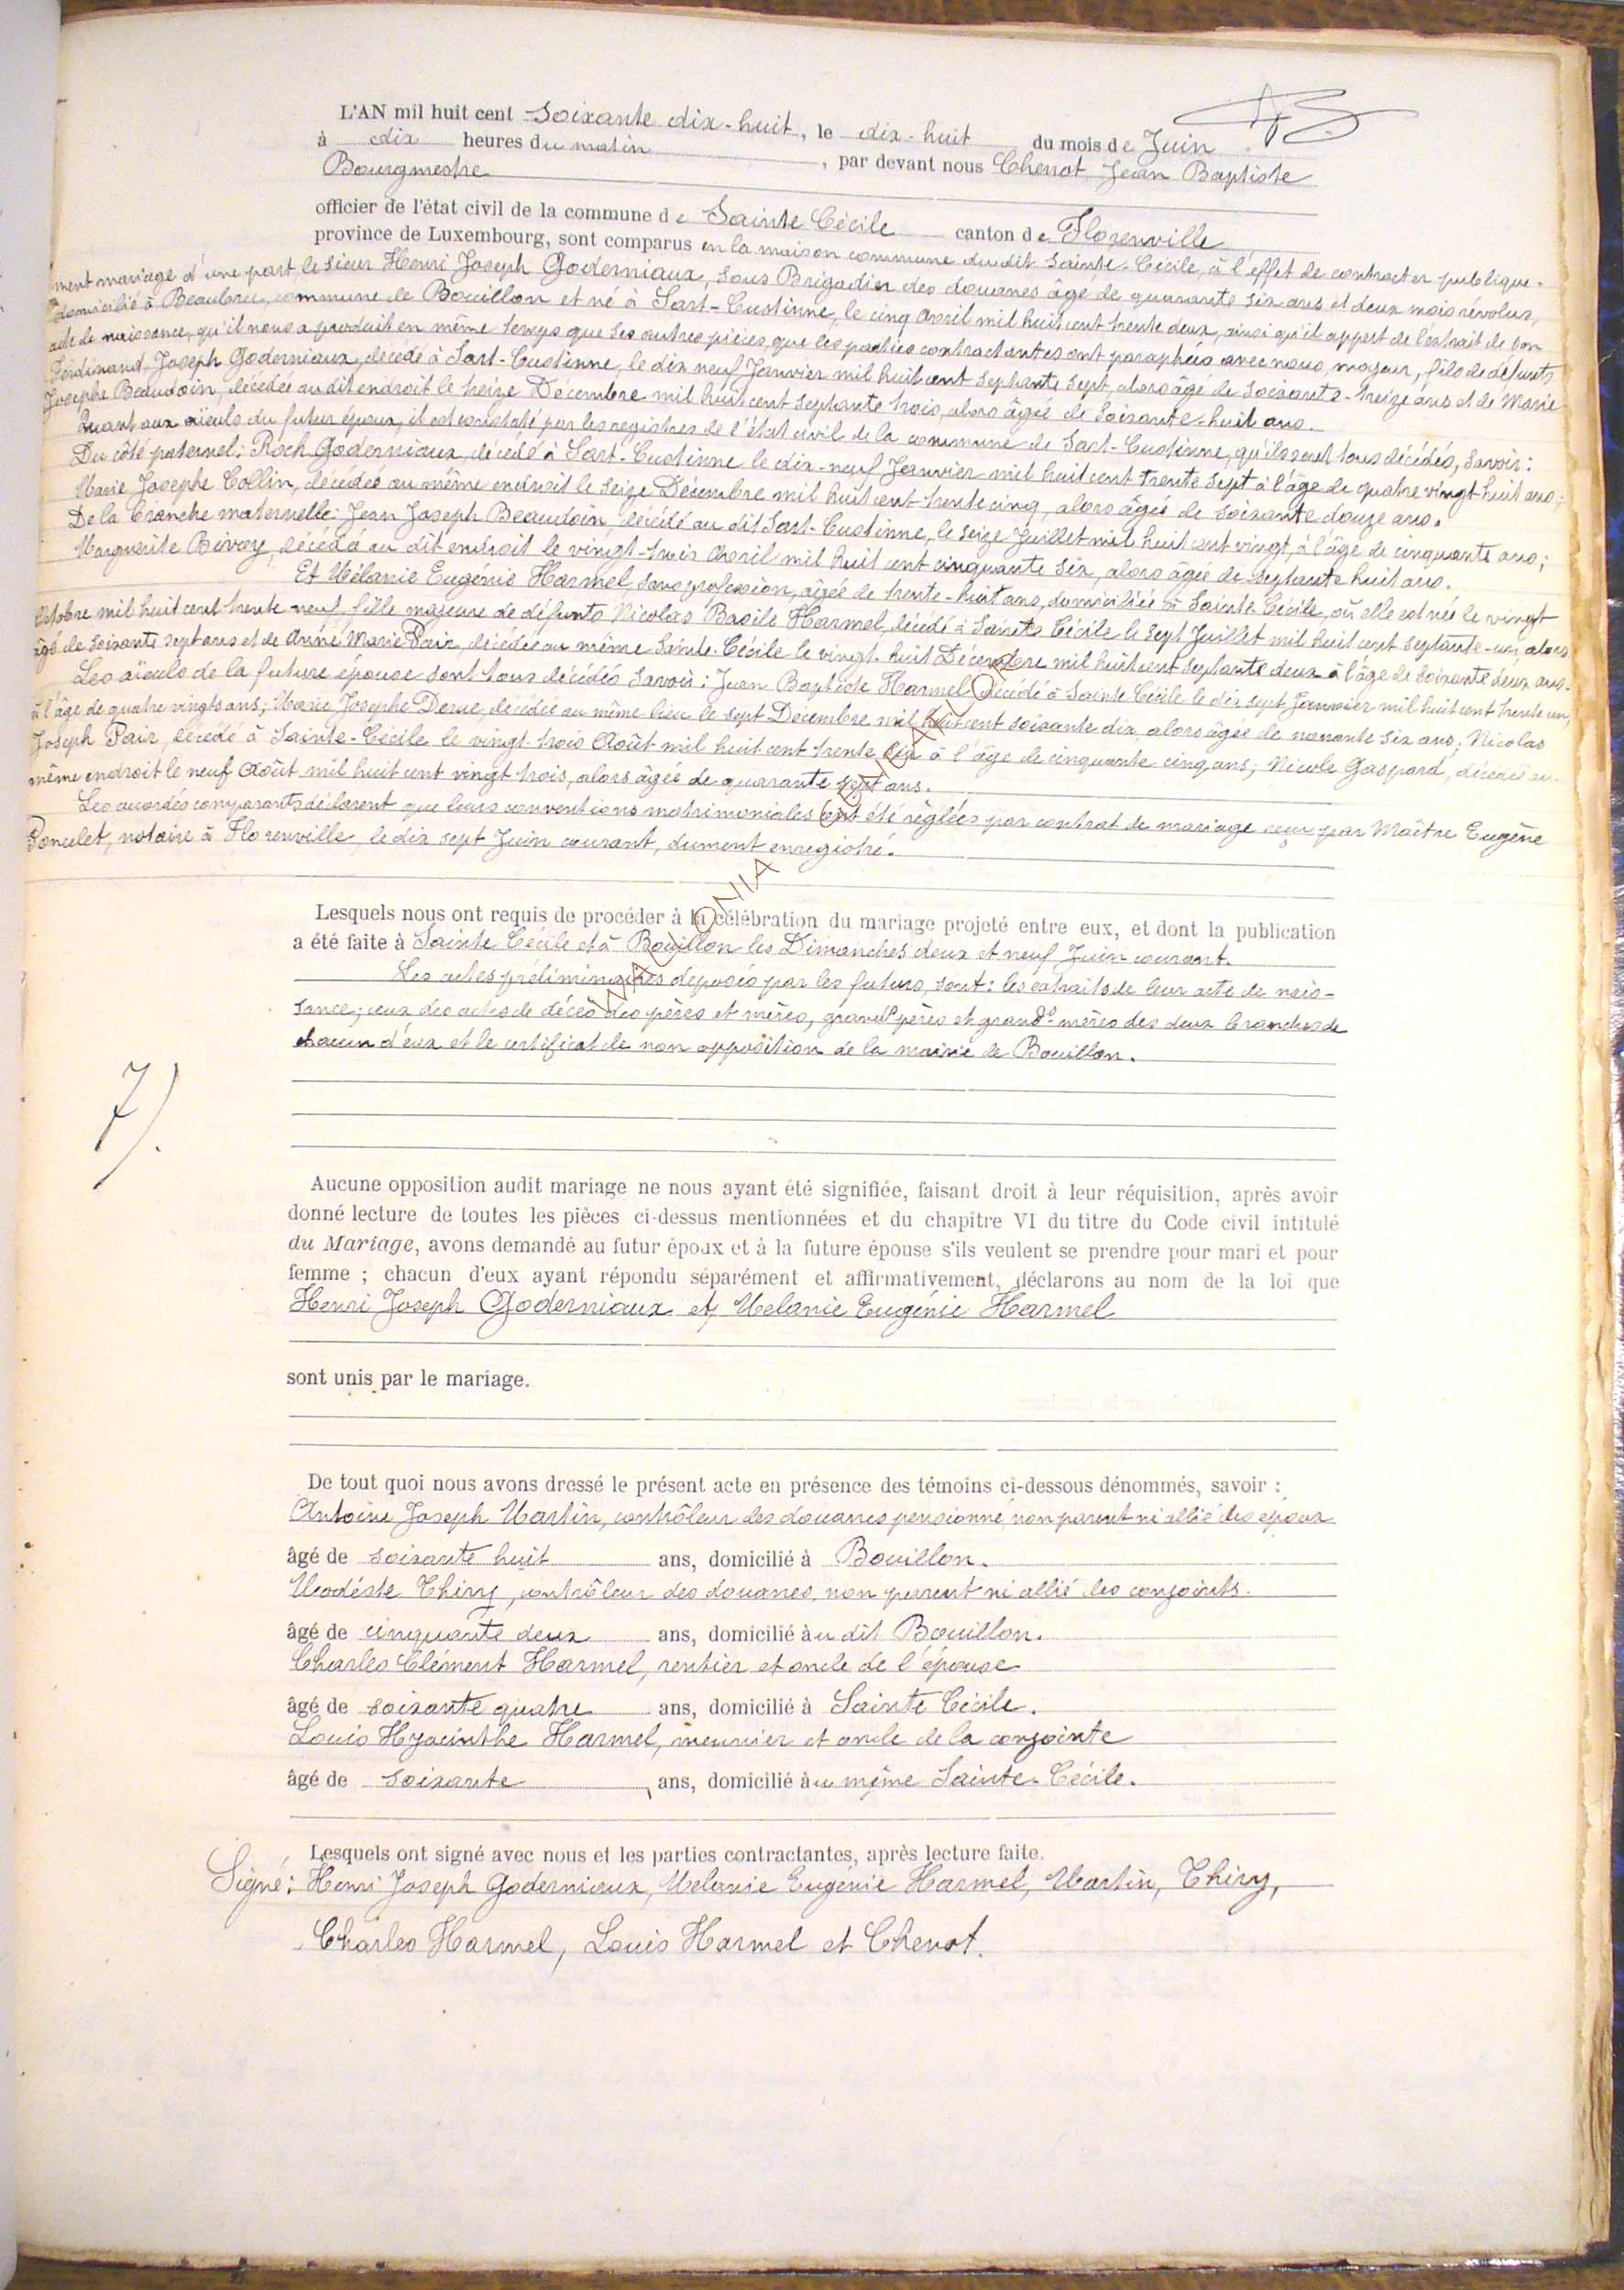 L'AN mil huit cent soixante dix-huit, le dix-huit du mois de Juin
à dix heures du matin, par devant nous Chenot Jean Baptiste
Bourgmestre
officier de l'état civil de la commune de Sainte Cécile canton de Florenville
province de Luxembourg, sont comparus en la maison commune du dit Sainte-Cécile, à l'effet de contracter publique-
ment mariage d'une part le sieur Henri Joseph Goderniaux, sous Brigadier des douanes âgé de quarante six ans et deux mois révolus,
domicilié à Beaubru, commune de Bouillon et né à Sart-Custinne, le cinq Avril mil huit cent trente deux, ainsi qu'il appert de l'extrait de son
acte de naissance, qu'il nous a produit en même temps que ses autres pièces que les parties contractantes ont paraphées avec nous, majeur, fils de défunts
Ferdinand Joseph Goderniaux, décédé à Sart-Custinne, le dix neuf Janvier mil huit cent septante sept, alors âgé de soixante-treize ans et de Marie
Josephe Beaudoin, décédée au dit endroit le treize Décembre mil huit cent septante trois, alors âgée de soixante-huit ans.
Quant aux aïeuls du futur époux, il est constaté par les registres de l'état civil de la commune de Sart-Custinne, qu'ils sont tous décédés, savoir:
Du côté paternel: Roch Goderniaux, décédé à Sart-Custinne le dix-neuf Janvier mil huit cent trente sept à l'âge de quatre vingt-huit ans;
Marie Josephe Collin, décédée au même endroit le seize Décembre mil huit cent trente cinq, alors âgée de soixante douze ans.
De la branche maternelle: Jean Joseph Beaudoin, décédé au dit Sart-Custinne, le seize Juillet mil huit cent vingt, à l'âge de cinquante ans;
Marguerite Bivoy, décédée au dit endroit le vingt-trois Avril mil huit cent cinquante six, alors âgée de septante huit ans.
Et Mélanie Eugénie Harmel, sans profession, âgée de trente-huit ans, domiciliée à Sainte Cécile, où elle est née le vingt
Octobre mil huit cent trente-neuf, fille majeure de défunts Nicolas Basile Harmel, décédé à Sainte Cécile le sept Juillet mil huit cent septante-un, alors
âgé de soixante sept ans et de Anne Marie Pair, décédée au même Sainte-Cécile le vingt-huit Décembre mil huit cent septante deux à l'âge de soixante deux ans.
Les aïeuls de la future épouse sont tous décédés savoir: Jean Baptiste Harmel décédé à Sainte Cécile le dix sept Janvier mil huit cent trente un,
à l'âge de quatre vingts ans; Marie Josephe Derue, décédée au même lieu le sept Décembre mil huit cent soixante dix, alors âgée de nonante six ans; Nicolas
Joseph Pair, décédé à Sainte-Cécile le vingt trois Août mil huit cent trente six à l'âge de cinquante cinq ans; Nicole Gaspard, décédée au
même endroit le neuf Août mil huit cent vingt trois, alors âgée de quarante sept ans.
Les accordés comparants déclarent que leurs conventions matrimoniales ont été règlées par contrat de mariage reçu par Maître Eugène
Poncelet, notaire à Florenville, le dix sept Juin courant, dument enregistré.
Lesquels nous ont requis de procéder à la célébration du mariage projeté entre eux, et dont la publication
a été faite à Sainte Cécile et à Bouillon les Dimanches deux et neuf Juin courant.
Les actes préliminaires déposés par les futurs, sont: les extraits de leur acte de nais-
sance; ceux des actes de décès des pères et mères, grands pères et grands-mères des deux branches de
chacun d'eux et le certificat de non opposition de la mairie de Bouillon.
7).
Aucune opposition audit mariage ne nous ayant été signifiée, faisant droit à leur réquisition, après avoir
donné lecture de toutes les pièces ci-dessus mentionnées et du chapitre VI du titre du Code civil intitulé
du Mariage, avons demandé au futur époux et à la future épouse s'ils veulent se prendre pour mari et pour
femme ; chacun d'eux ayant répondu séparément et affirmativement, déclarons au nom de la loi que
Henri Joseph Goderniaux et Mélanie Eugénie Harmel
sont unis par le mariage.
De tout quoi nous avons dressé le présent acte en présence des témoins ci-dessous dénommés, savoir :
Antoine Joseph Martin, contrôleur des douanes pensionné non parent ni allié des époux
âgé de soixante huit ans, domicilié à Bouillon.
Modéste Thiry, contrôleur des douanes, non parent ni allié des conjoints.
âgé de cinquante deux ans, domicilié au dit Bouillon.
Charles Clément Harmel, rentier et oncle de l'épouse
âgé de soixante quatre ans, domicilié à Sainte Cécile.
Louis Hyacinthe Harmel, meunier et oncle de la conjointe
âgé de soixante ans, domicilié au même Sainte-Cécile.
Lesquels ont signé avec nous et les parties contractantes, après lecture faite.
Signé: Henri Joseph Goderniaux, Mélanie Eugénie Harmel, Martin, Thiry,
Charles Harmel, Louis Harmel et Chenot.